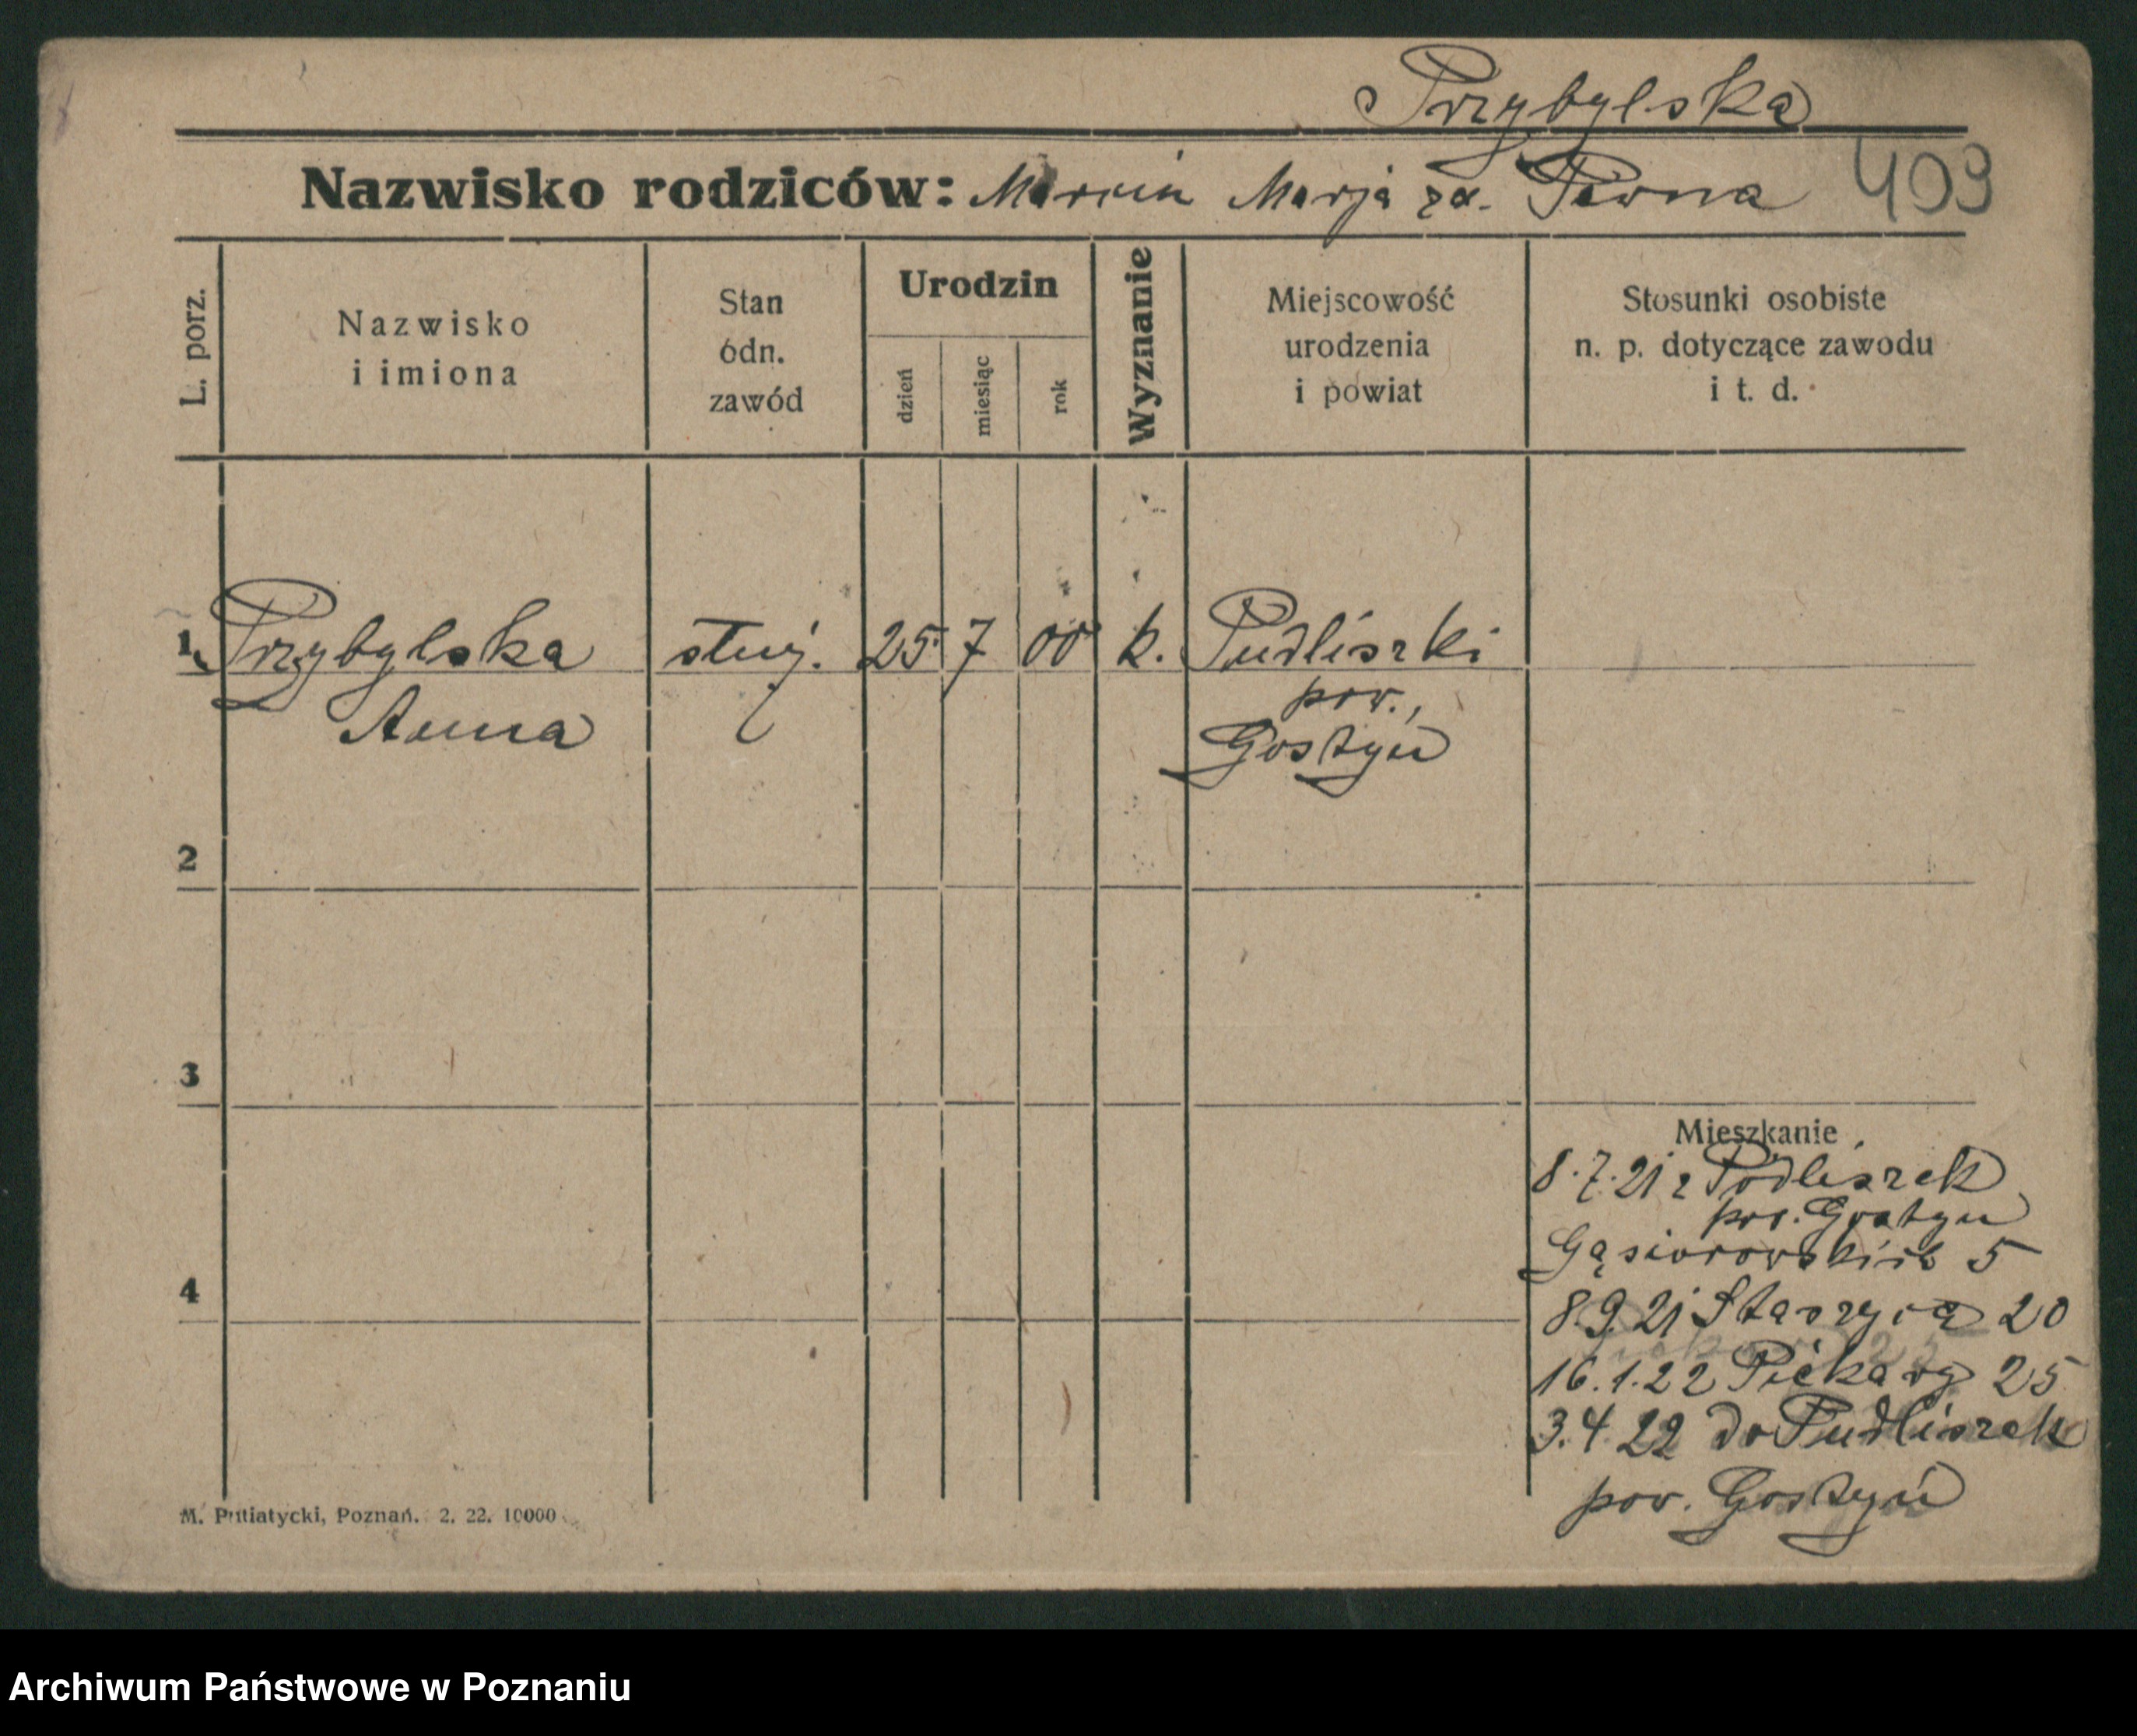 Przybylska
Nazwisko rodziców: Marcin Marja zd. Pewna 409
L. porz.
Nazwisko
i imiona
Stan
odn.
zawód
Urodzin
dzień
miesiąc
rok
Wyznanie
Miejscowość
urodzenia
i powiat
Stosunki osobiste
n. p. dotyczące zawodu
i t. d.
1. Przybylska służ. 25. 7 00 k. Pudliszki
Anna
pow.,
Gostyń
2
3
4
Mieszkanie
8.7.21 z Podliszek
pow. Gostyn
Gąsiorowskich 5
8.9.21 Staszyca 20
16.1.22 Piekary 25
3.4.22 do Pudliszek
pow. Gostyń
M. Putiatycki, Poznań. 2. 22. 10000
Archiwum Państwowe w Poznaniu